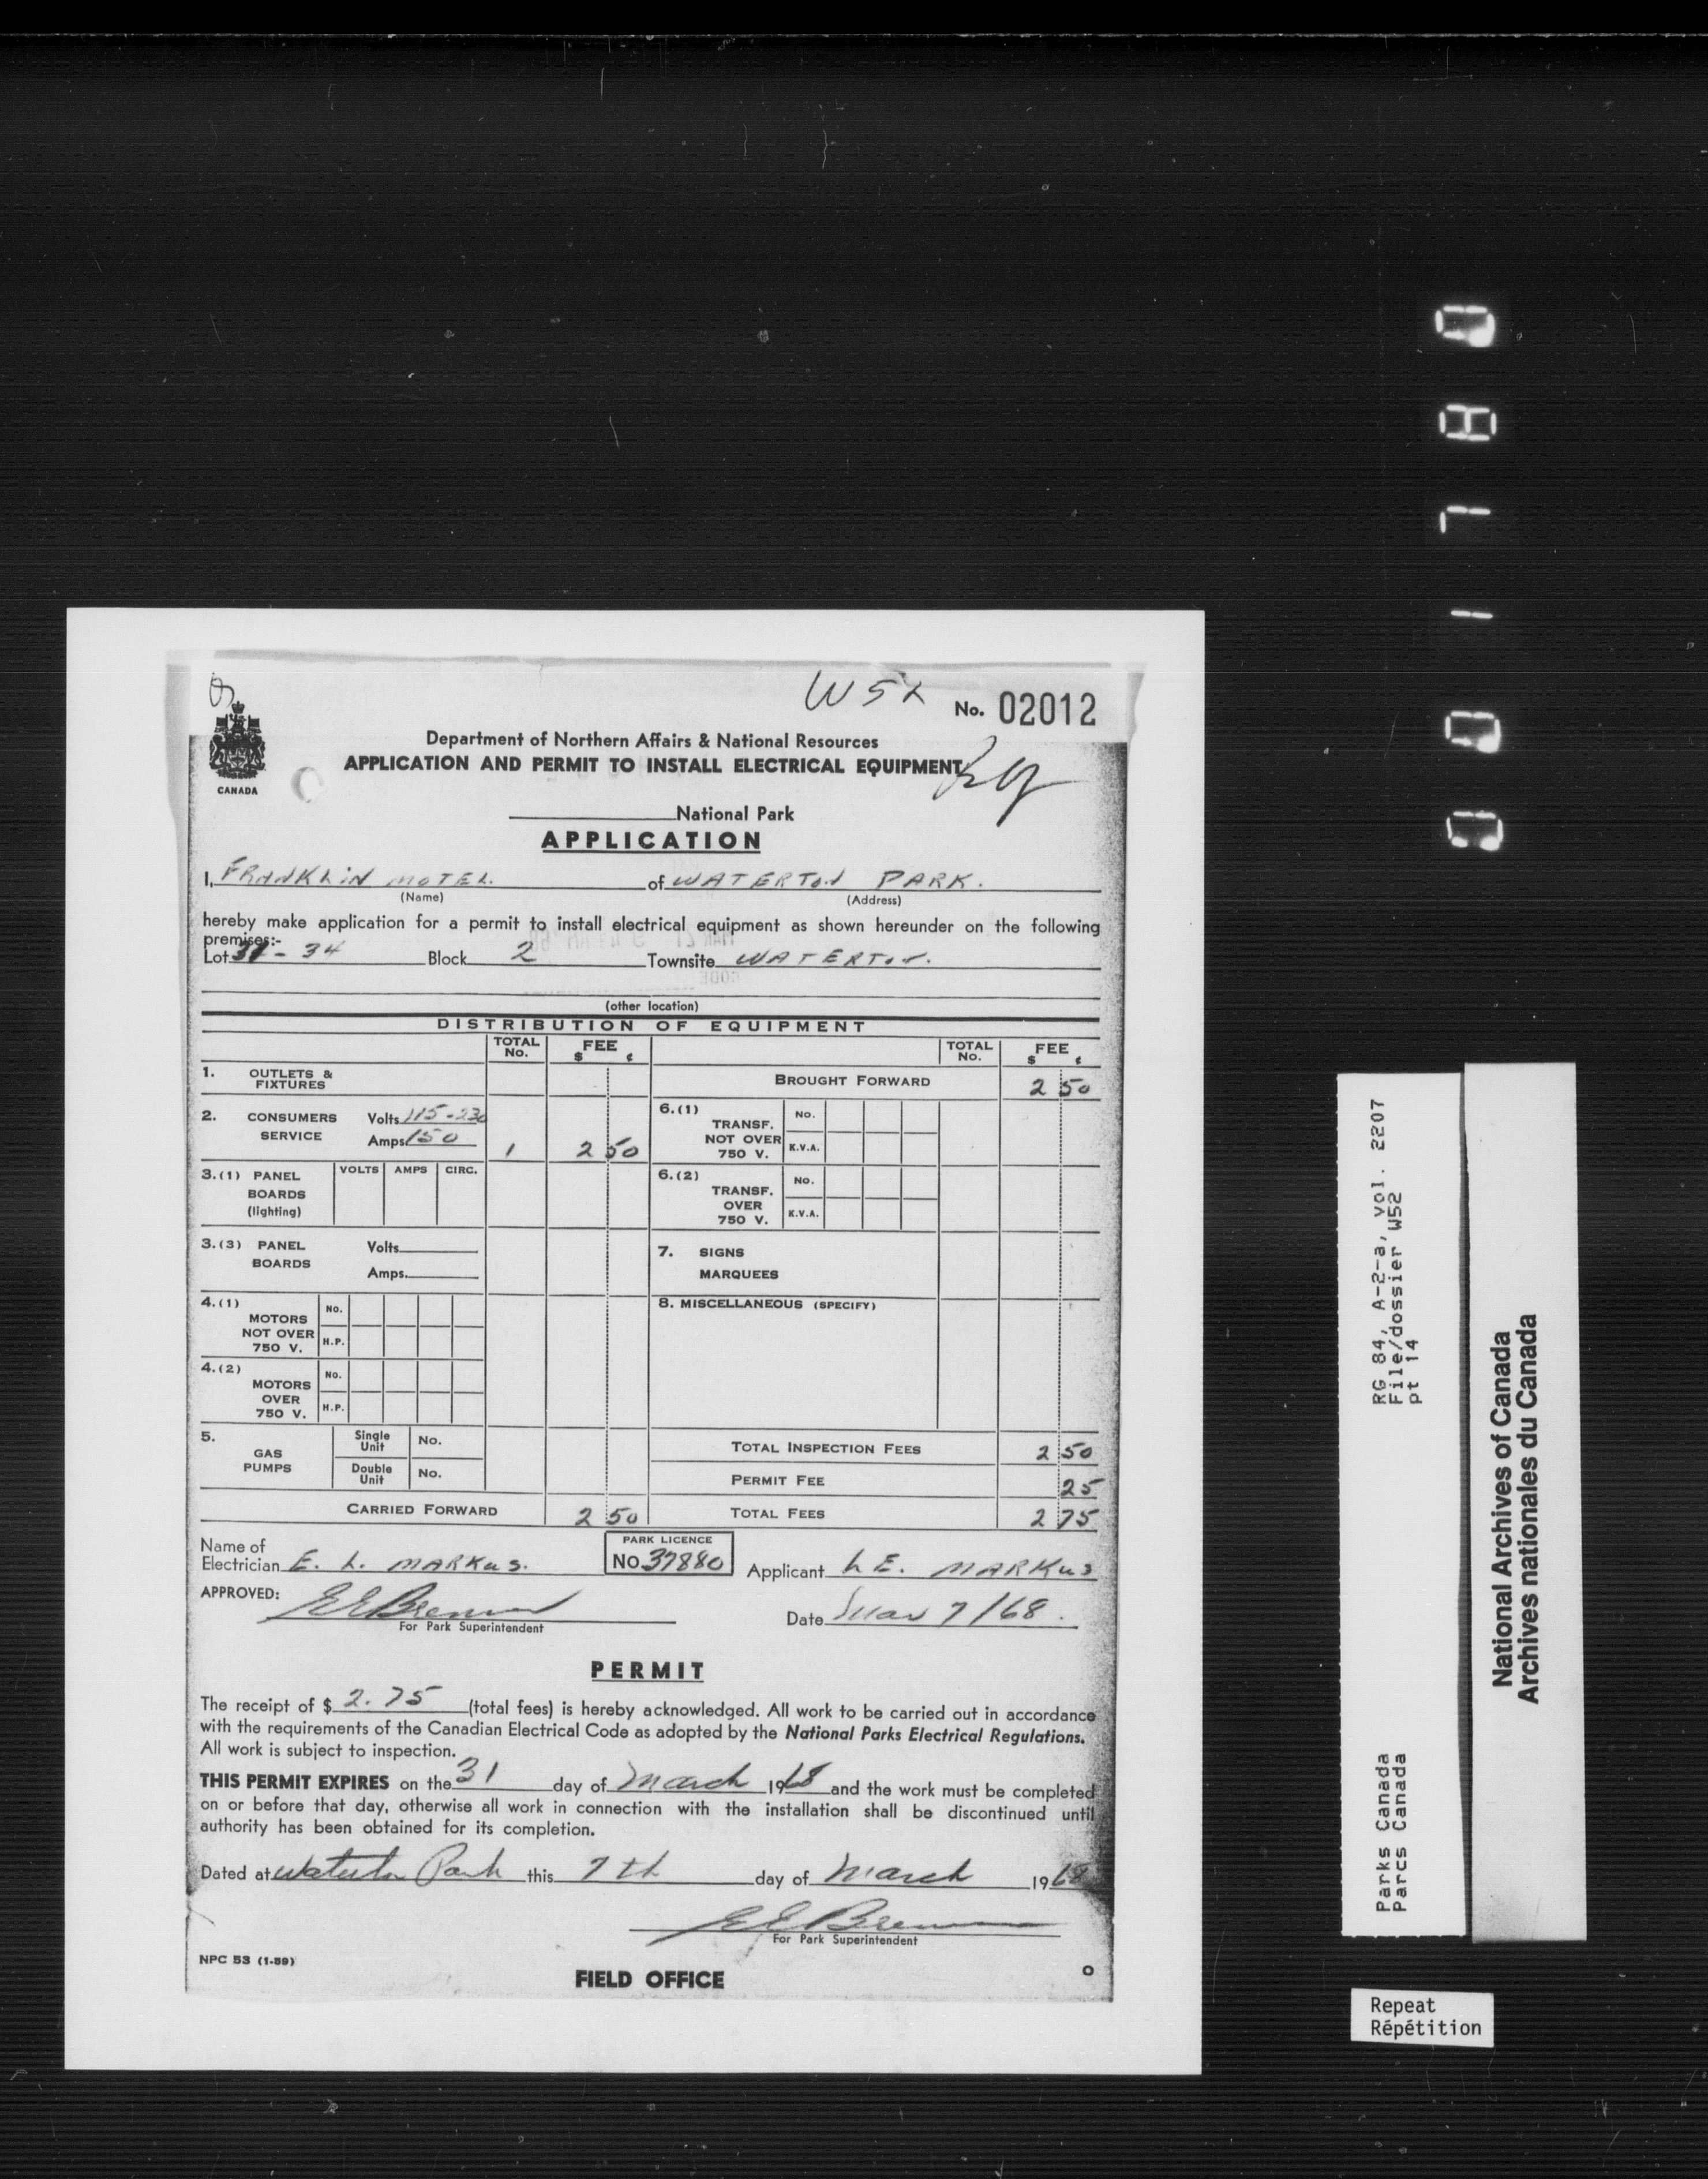 W52
No. 02012
Department of Northern Affairs & National Resources
APPLICATION AND PERMIT TO INSTALL ELECTRICAL EQUIPMENT
CANADA
National Park
APPLICATION
I, FRANKLIN MOTEL of WATERTON PARK.
(Name) (Address)
hereby make application for a permit to install electrical equipment as shown hereunder on the following
premises:-
Lot 31 - 34 Block 2 Townsite WATERTON.
(other location)
DISTRIBUTION OF EQUIPMENT
TOTAL No. FEE $ ¢ TOTAL No. FEE $ ¢
1. OUTLETS & FIXTURES BROUGHT FORWARD 2 50
2. CONSUMERS SERVICE Volts 115-230 Amps 150 1 2 50
6.(1) TRANSF. NOT OVER 750 V. No. K.V.A.
3.(1) PANEL BOARDS (lighting) VOLTS AMPS CIRC.
6.(2) TRANSF. OVER 750 V. No. K.V.A.
3.(3) PANEL BOARDS Volts Amps.
7. SIGNS MARQUEES
4.(1) MOTORS NOT OVER 750 V. No. H.P.
8. MISCELLANEOUS (SPECIFY)
4.(2) MOTORS OVER 750 V. No. H.P.
5. GAS PUMPS Single Unit No. Double Unit No.
TOTAL INSPECTION FEES 2 50
PERMIT FEE 25
CARRIED FORWARD 2 50 TOTAL FEES 2 75
Name of
Electrician E. L. MARKUS. PARK LICENCE NO 37880 Applicant L E. MARKUS
APPROVED:
For Park Superintendent
Date Mar 7/68.
PERMIT
The receipt of $ 2.75 (total fees) is hereby acknowledged. All work to be carried out in accordance
with the requirements of the Canadian Electrical Code as adopted by the National Parks Electrical Regulations.
All work is subject to inspection.
THIS PERMIT EXPIRES on the 31 day of March 1968 and the work must be completed
on or before that day, otherwise all work in connection with the installation shall be discontinued until
authority has been obtained for its completion.
Dated at Waterton Park this 7th day of March 1968
For Park Superintendent
NPC 53 (1-59)
FIELD OFFICE
RG 84, A-2-a, vol. 2207
File/dossier W52
pt 14
Parks Canada
Parcs Canada
National Archives of Canada
Archives nationales du Canada
Repeat
Répétition